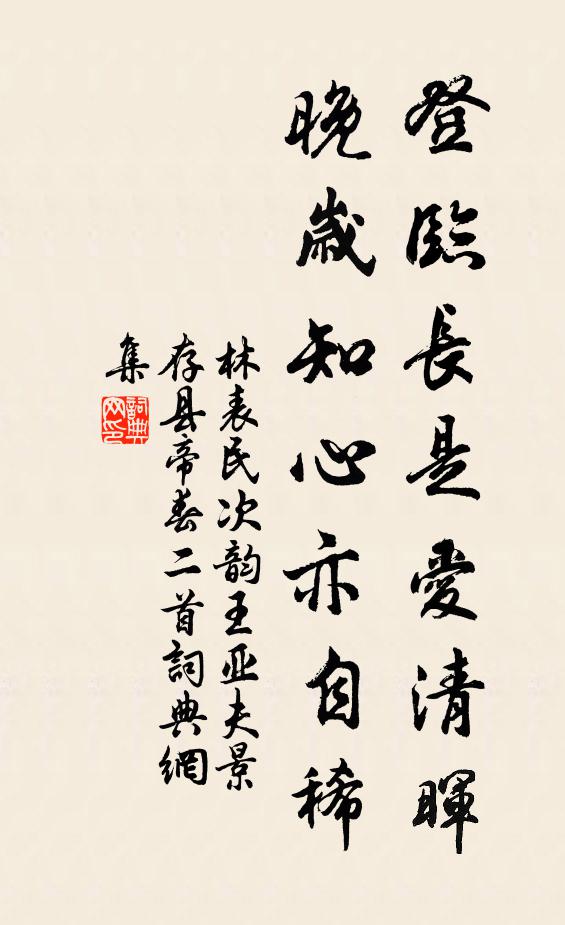 登臨長是愛清暉
晚歲知心亦自稀
林表民次韵王亚夫景
存县帝春二首詞典網
集
詞典
网印